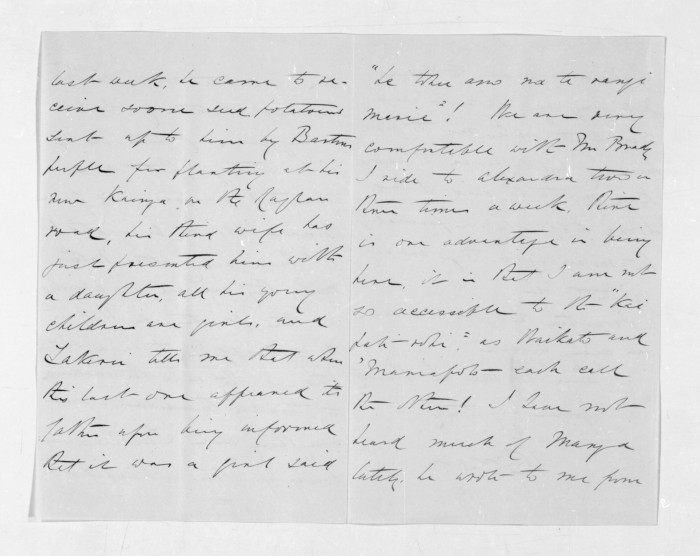 last week, he came to re-
ceive some seed potatoes
sent up to him by Bartons
people for planting at his
new Kainga on the Raglan
road, his third wife has
just presented him with
a daughter, all his young
children are girls, and
tells me that when
this last one appeared its
father upon being informed
that it was a girl said
"he tohu ano no te rangi
marie"! We are very
comfortable with Mr Brady
I ride to Alexandra two or
three times a week. There
is one advantage in being
here, it is that I am not
so accessible to the "Kai
" as Waikato and
Maniapoto each call
the other! I have not
heard much of Manga
lately. he wrote to me from